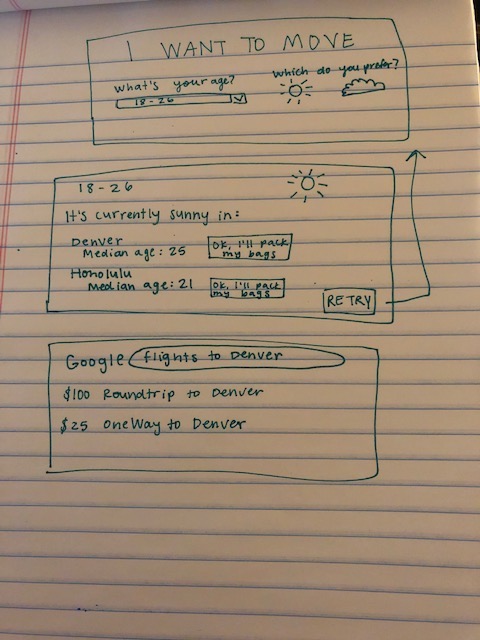 I WANT TO MOVE
What's your age?
Which do you prefer?
18-26
18-26
It's currently sunny in:
Denver
Median age: 25
Ok, I'll pack
my bags
Honolulu
Median age: 21
Ok, I'll pack
my bags
RETRY
Google flights to Denver
$100 Roundtrip to Denver
$25 OneWay to Denver